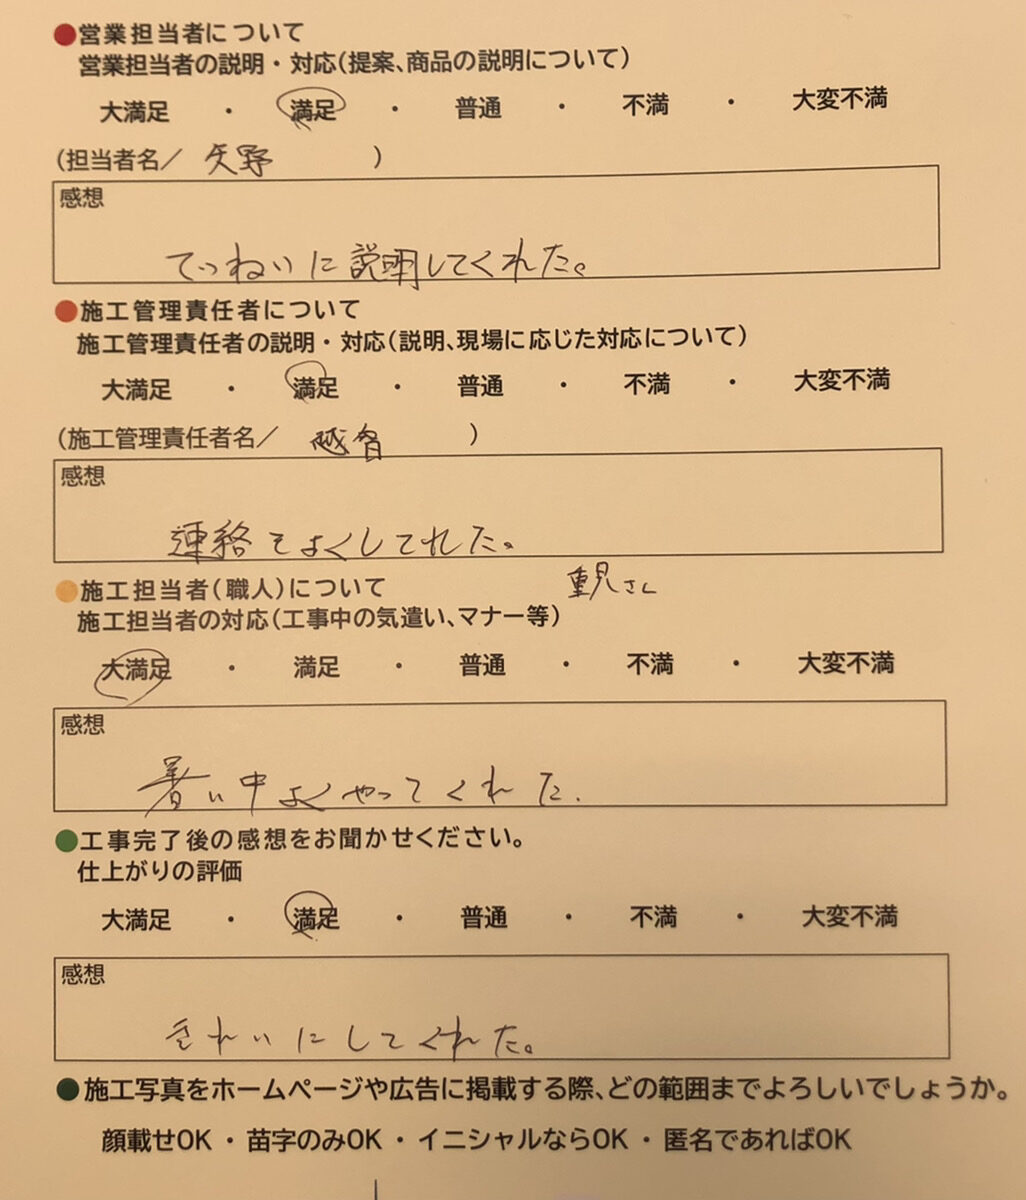 ●営業担当者について
営業担当者の説明・対応(提案、商品の説明について)
大満足 ・ 満足 ・ 普通 ・ 不満 ・ 大変不満
(担当者名／ 矢野 )
感想
ていねいに説明してくれた。
●施工管理責任者について
施工管理責任者の説明・対応(説明、現場に応じた対応について)
大満足 ・ 満足 ・ 普通 ・ 不満 ・ 大変不満
(施工管理責任者名／ 越智 )
感想
連絡をよくしてれた。
●施工担当者(職人)について 重見さん
施工担当者の対応(工事中の気遣い、マナー等)
大満足 ・ 満足 ・ 普通 ・ 不満 ・ 大変不満
感想
暑い中よくやってくれた.
●工事完了後の感想をお聞かせください。
仕上がりの評価
大満足 ・ 満足 ・ 普通 ・ 不満 ・ 大変不満
感想
きれいにしてくれた。
●施工写真をホームページや広告に掲載する際、どの範囲までよろしいでしょうか。
顔載せOK・苗字のみOK・イニシャルならOK・匿名であればOK